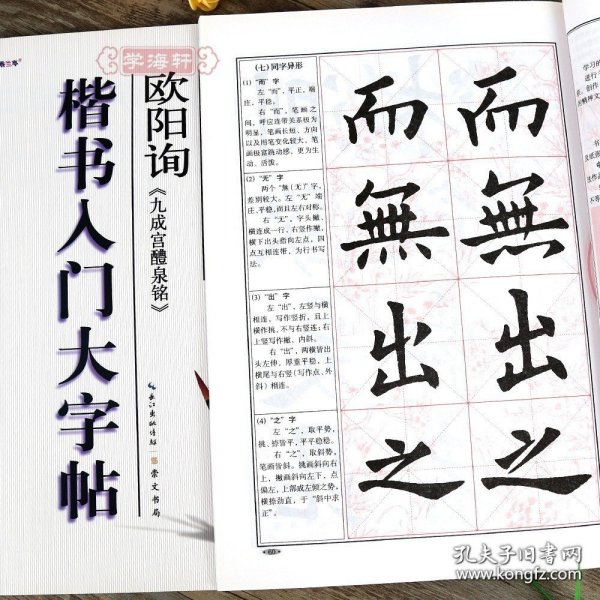 墨兰亭
学海轩
欧阳询
《九成宫醴泉铭》
楷书入门大字帖
长江出版传媒
崇文书局
(七)同字异形
(1)“而”字
左“而”,平正,端
庄,平稳。
右“而”,笔画之
间,呼应连带关系极为
明显,笔画长短、方向
以及用笔变化较大,笔
画极富跳动感,更为生
动、活泼。
(2)“无”字
两个“無(无)”字,
差别较大。左“无”端
庄、平稳,而且左右对称。
右“无”,字头撇、
横连成一行,右竖作撇,
横下出头指向左点,四
点互相连带,为行书写
法。
(3)“出”字
左“出”,左竖与横
相连,写作竖折,且上
横作挑,不与右竖连;右
上竖写作撇,内斜。
右“出”,两横皆出
头左伸,厚重平稳,上
横尾与右竖(写作点、外
斜)相连。
(4)“之”字
左“之”,取平势,
挑、捺皆平,平平稳稳。
右“之”,取斜势,
笔画皆斜。挑画斜向右
上,撇画斜向左下,点
偏左,上部成左倾之势,
横捺劲直,于“斜中求
正”。
而 而
無 無
出 出
之 之
60
学习的
进行
创作
精神文
孔夫子旧书网
www.kongfz.com